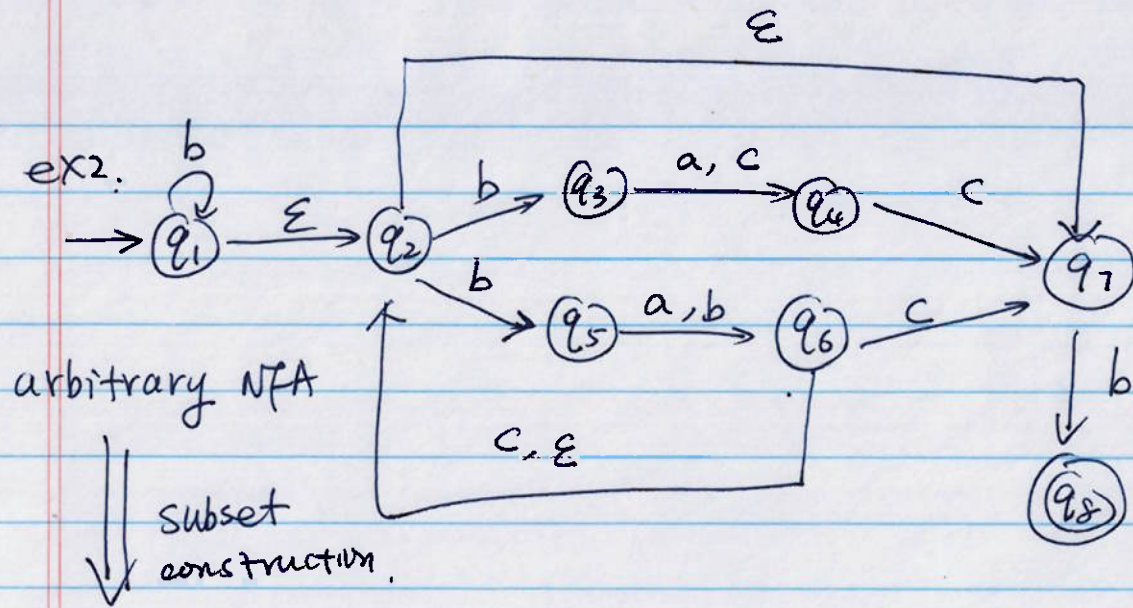 ε
ex2.
b
ε
q1
q2
b
q3
a, c
q4
c
q7
b
q5
a, b
q6
c
b
q8
c, ε
arbitrary NFA
subset
construction.